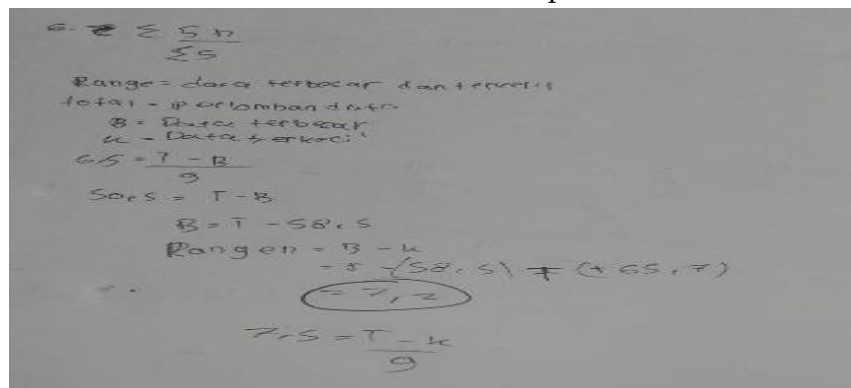 6. Σ 5 n
Σ 5
Range = data terbesar dan terkecil
total =
B = Data terbesar
K = Data terkecil
6,5 = T - B
9
58,5 = T - B
B = T - 58,5
Rangen = B - K
(58,5) + (+ 65,7)
= 7,2
7,5 = T - K
9